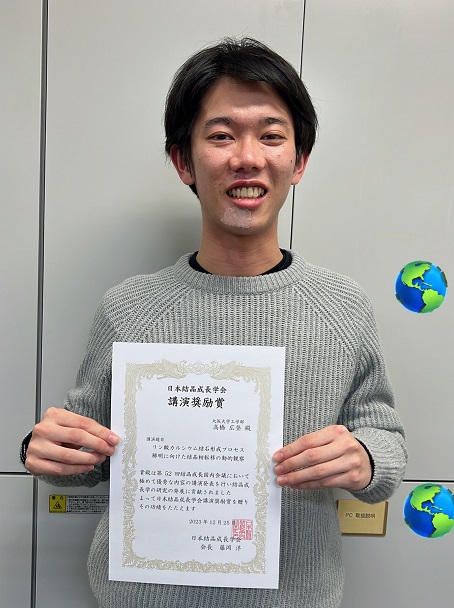 日本結晶成長学会
講演奨励賞
大阪大学工学部
高橋 広登 殿
講演題目
リン酸カルシウム結石形成プロセス
解明に向けた結晶相転移の動的観察
貴殿は第 52 回結晶成長国内会議において
極めて優秀な内容の講演発表を行い結晶成
長学の研究の発展に貢献されました
よって日本結晶成長学会講演奨励賞を贈り
その功績をたたえます
2023 年 12 月 25 日
日本結晶成長学会
会長 藤岡 洋
PC 取扱説明